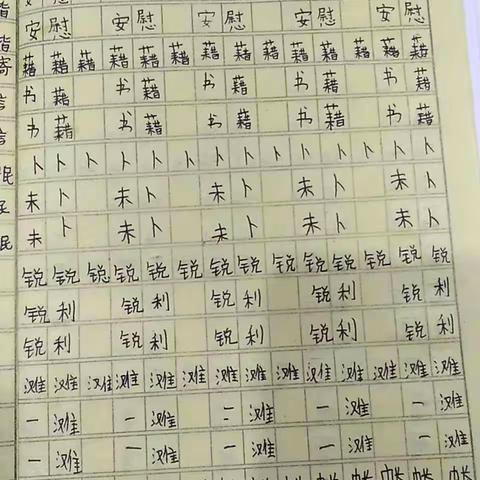 安慰 安慰 安慰 安慰 安慰
藉藉藉藉藉藉藉藉藉藉藉藉藉藉
书藉 书藉 书藉 书藉 书藉
书藉 书藉 书藉 书藉 书藉
卜卜卜卜卜卜卜卜卜卜卜卜卜卜
未卜 未卜 未卜 未卜 未卜
未卜 未卜 未卜 未卜 未卜
锐锐锐锐锐锐锐锐锐锐锐锐锐锐
锐利 锐利 锐利 锐利 锐利
锐利 锐利 锐利 锐利 锐利
滩滩滩滩滩滩滩滩滩滩滩滩滩滩
一滩 一滩 二滩 一滩 一滩
一滩 一滩 一滩 一滩 一滩